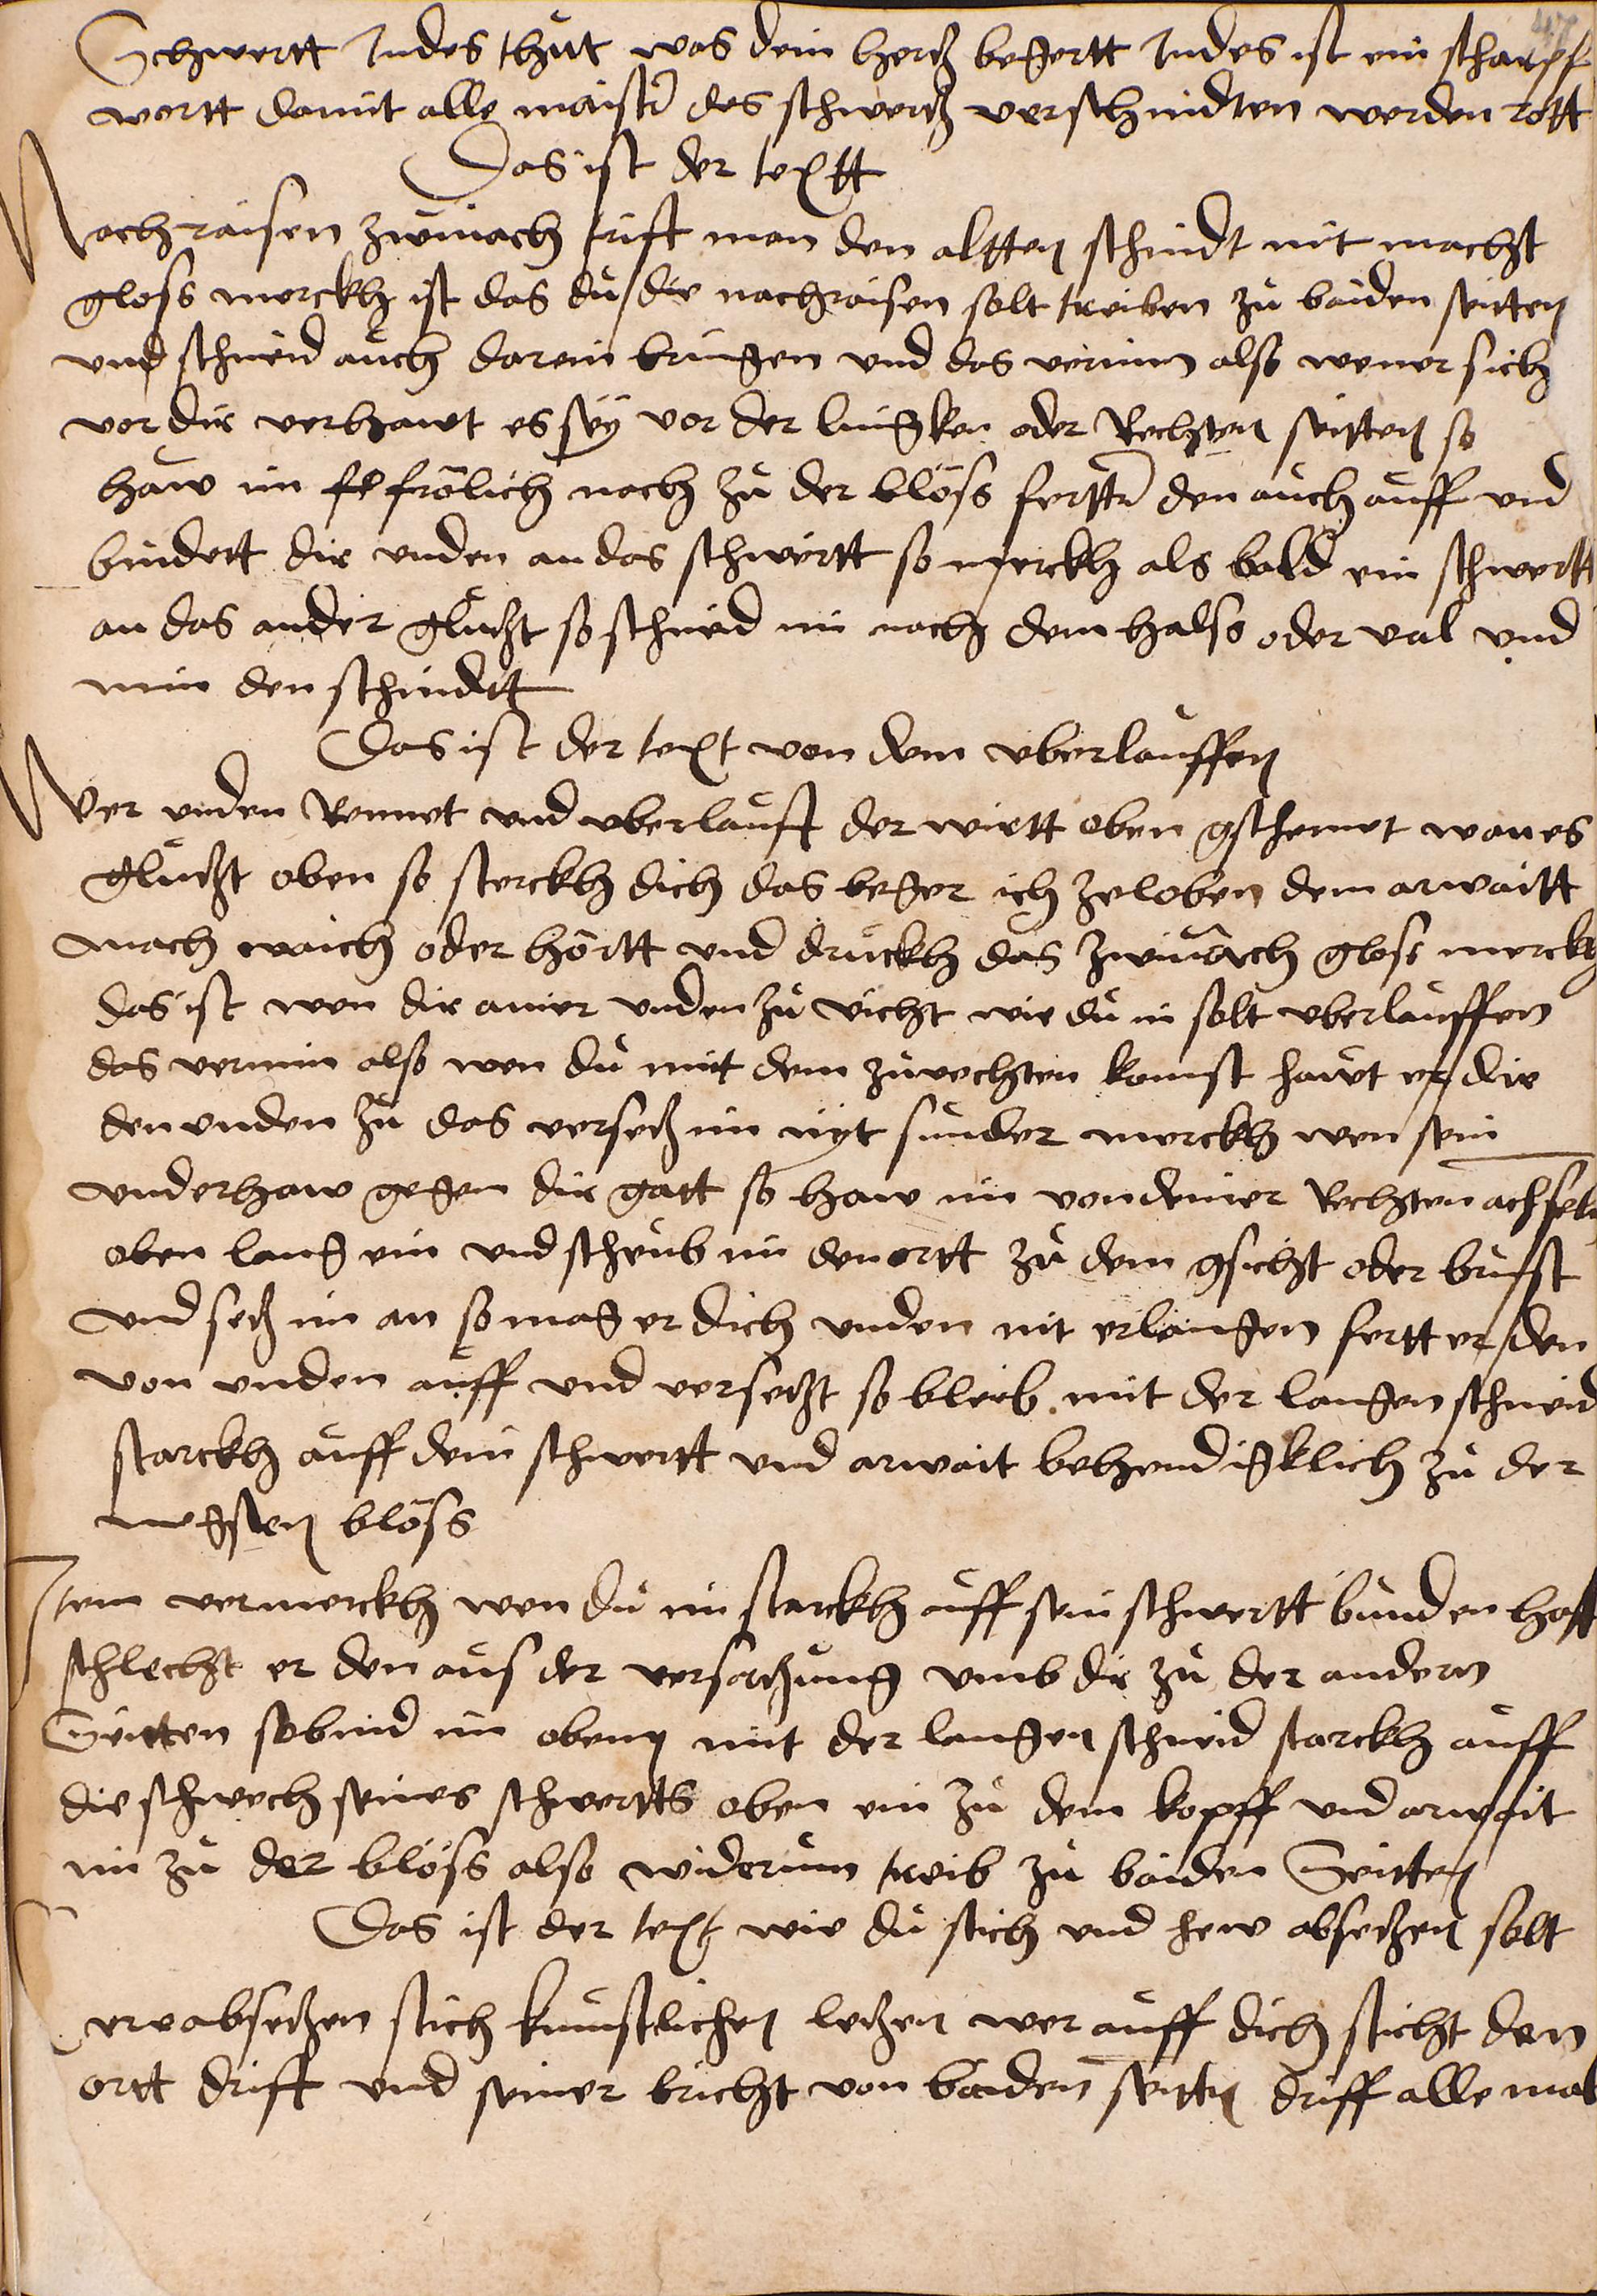 Schwertt Indes thut was dein hertz begertt Indes ist ein scharpf
wortt damit alle maistr des schwertz verschnidten werden rott
Das ist der textt
Nachraisen zwinach trift man den altten schnidt mit macht
gloss merckh ist das du die nachraisen solt treiben zu baiden seitten
vnd schneid auch darein bringen vnd das vernim also wener sich
vor dir verhawt es sey vor der lingken oder Rechten seitten so
haw im frölich nach zu der blöss fertt den auch auff vnd
bindett dir vnden an das schwertt so merckh als bald ein schwertt
an das ander glutzt so schneid im nach dem halss oder val vnd
nim den schnidtt
Das ist der text von dem vberlauffen
Wer vnden Remet vnd vberlauft der wirtt oben gschemet wan es
glutzt oben so sterckh dich das beger ich zeloben dem arwaitt
mach waich oder hörtt vnd druckh das zwinach gloss merckh
das ist wen dir ainer vnden zu vicht wie du in solt vberlauffen
das vernim also wen du mit dem zuvechten komst hawt er dir
den vnden zu das versetz im nyt sunder merckh wen sein
vnderhaw gegen dir gatt so haw im von deiner Rechten achseln
oben lang ein vnd scheub im den ortt zu dem gsicht oder brust
vnd setz im an so mag er dich vnden nit erlangen fertt er den
von vnden auff vnd versetzt so bleib mit der langen schneid
starckh auff dem schwertt vnd arwait behendigklich zu der
negsten blöss
Item vermerckh wen du im starckh auff sein schwertt bunden hast
schlecht er den aus der versatzung vmb dir zu der andern
Seitten so bind im oben mit der langen schneid starckh auff
die schwech seines schwertts oben ein zu dem kopff vnd arwait
im zu der blöss also widerum treib zu baiden Seitten
Das ist der text wie du stich vnd hew absetzen solt
ere absetzen stich kunstlichen letzen wer auff dich sticht dem
ortt drift vnd seiner bricht von baiden seittn driff alle mal